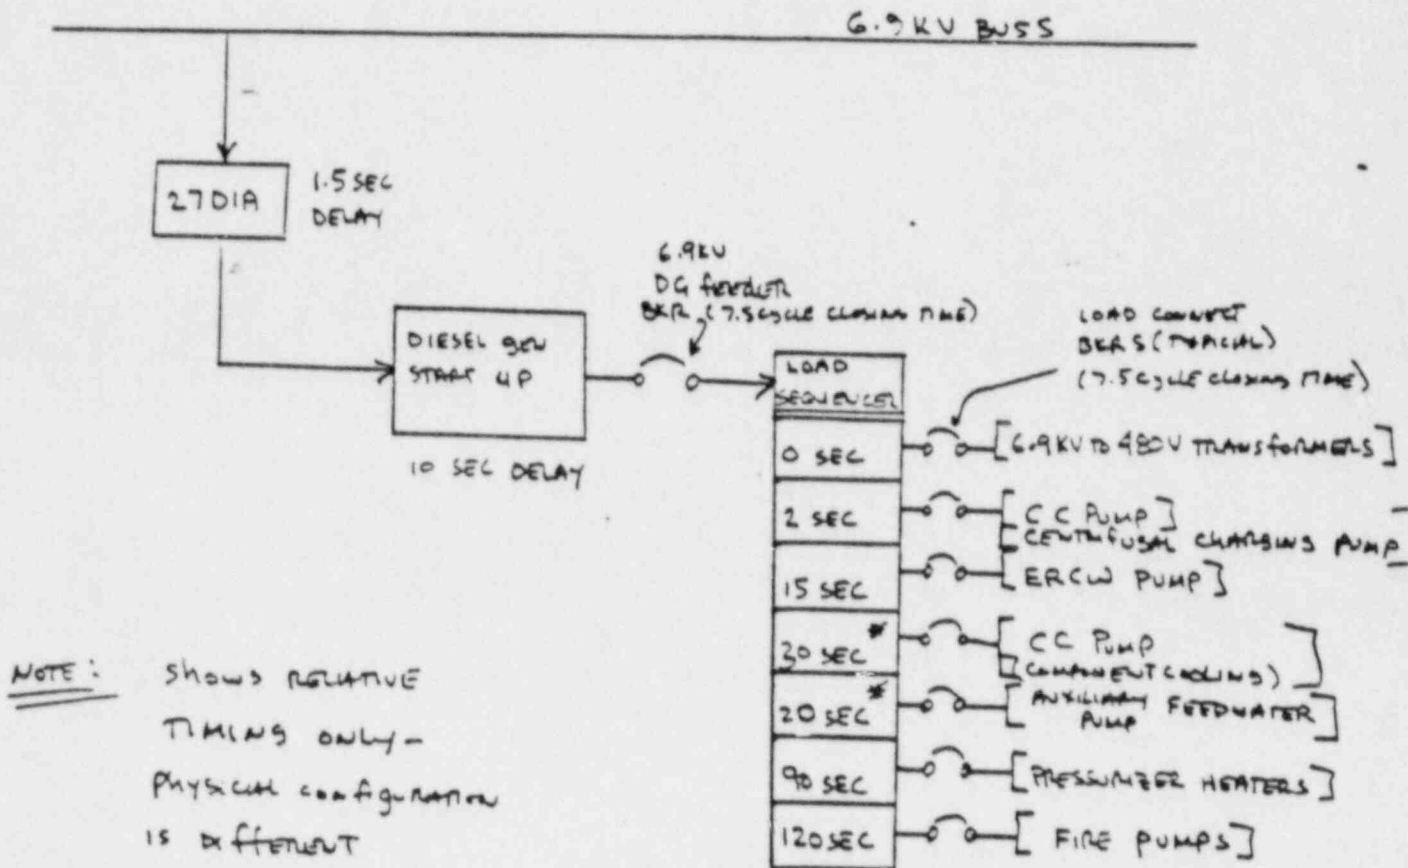 6.9 KV BUSS
27D1A
1.5 SEC
DELAY
DIESEL gen
START UP
10 SEC DELAY
6.9KV
DG feeder
BKR (7.5 cycle CLOSING TIME)
LOAD
SEQUENCER
LOAD CONNECT
BKRS (TYPICAL)
(7.5 cycle CLOSING TIME)
0 SEC
[6.9KV TO 480V TRANSformERS]
2 SEC
[C C PUMP]
[CENTRIFUGAL CHARGING PUMP]
15 SEC
[ERCW PUMP]
20 SEC *
[CC PUMP
(COMPONENT COOLING)]
20 SEC *
[AUXILIARY FEEDWATER
PUMP]
90 SEC
[PRESSURIZER HEATERS]
120 SEC
[FIRE PUMPS]
NOTE: SHOWS RELATIVE
TIMING ONLY-
physical configuration
IS DIffERENT